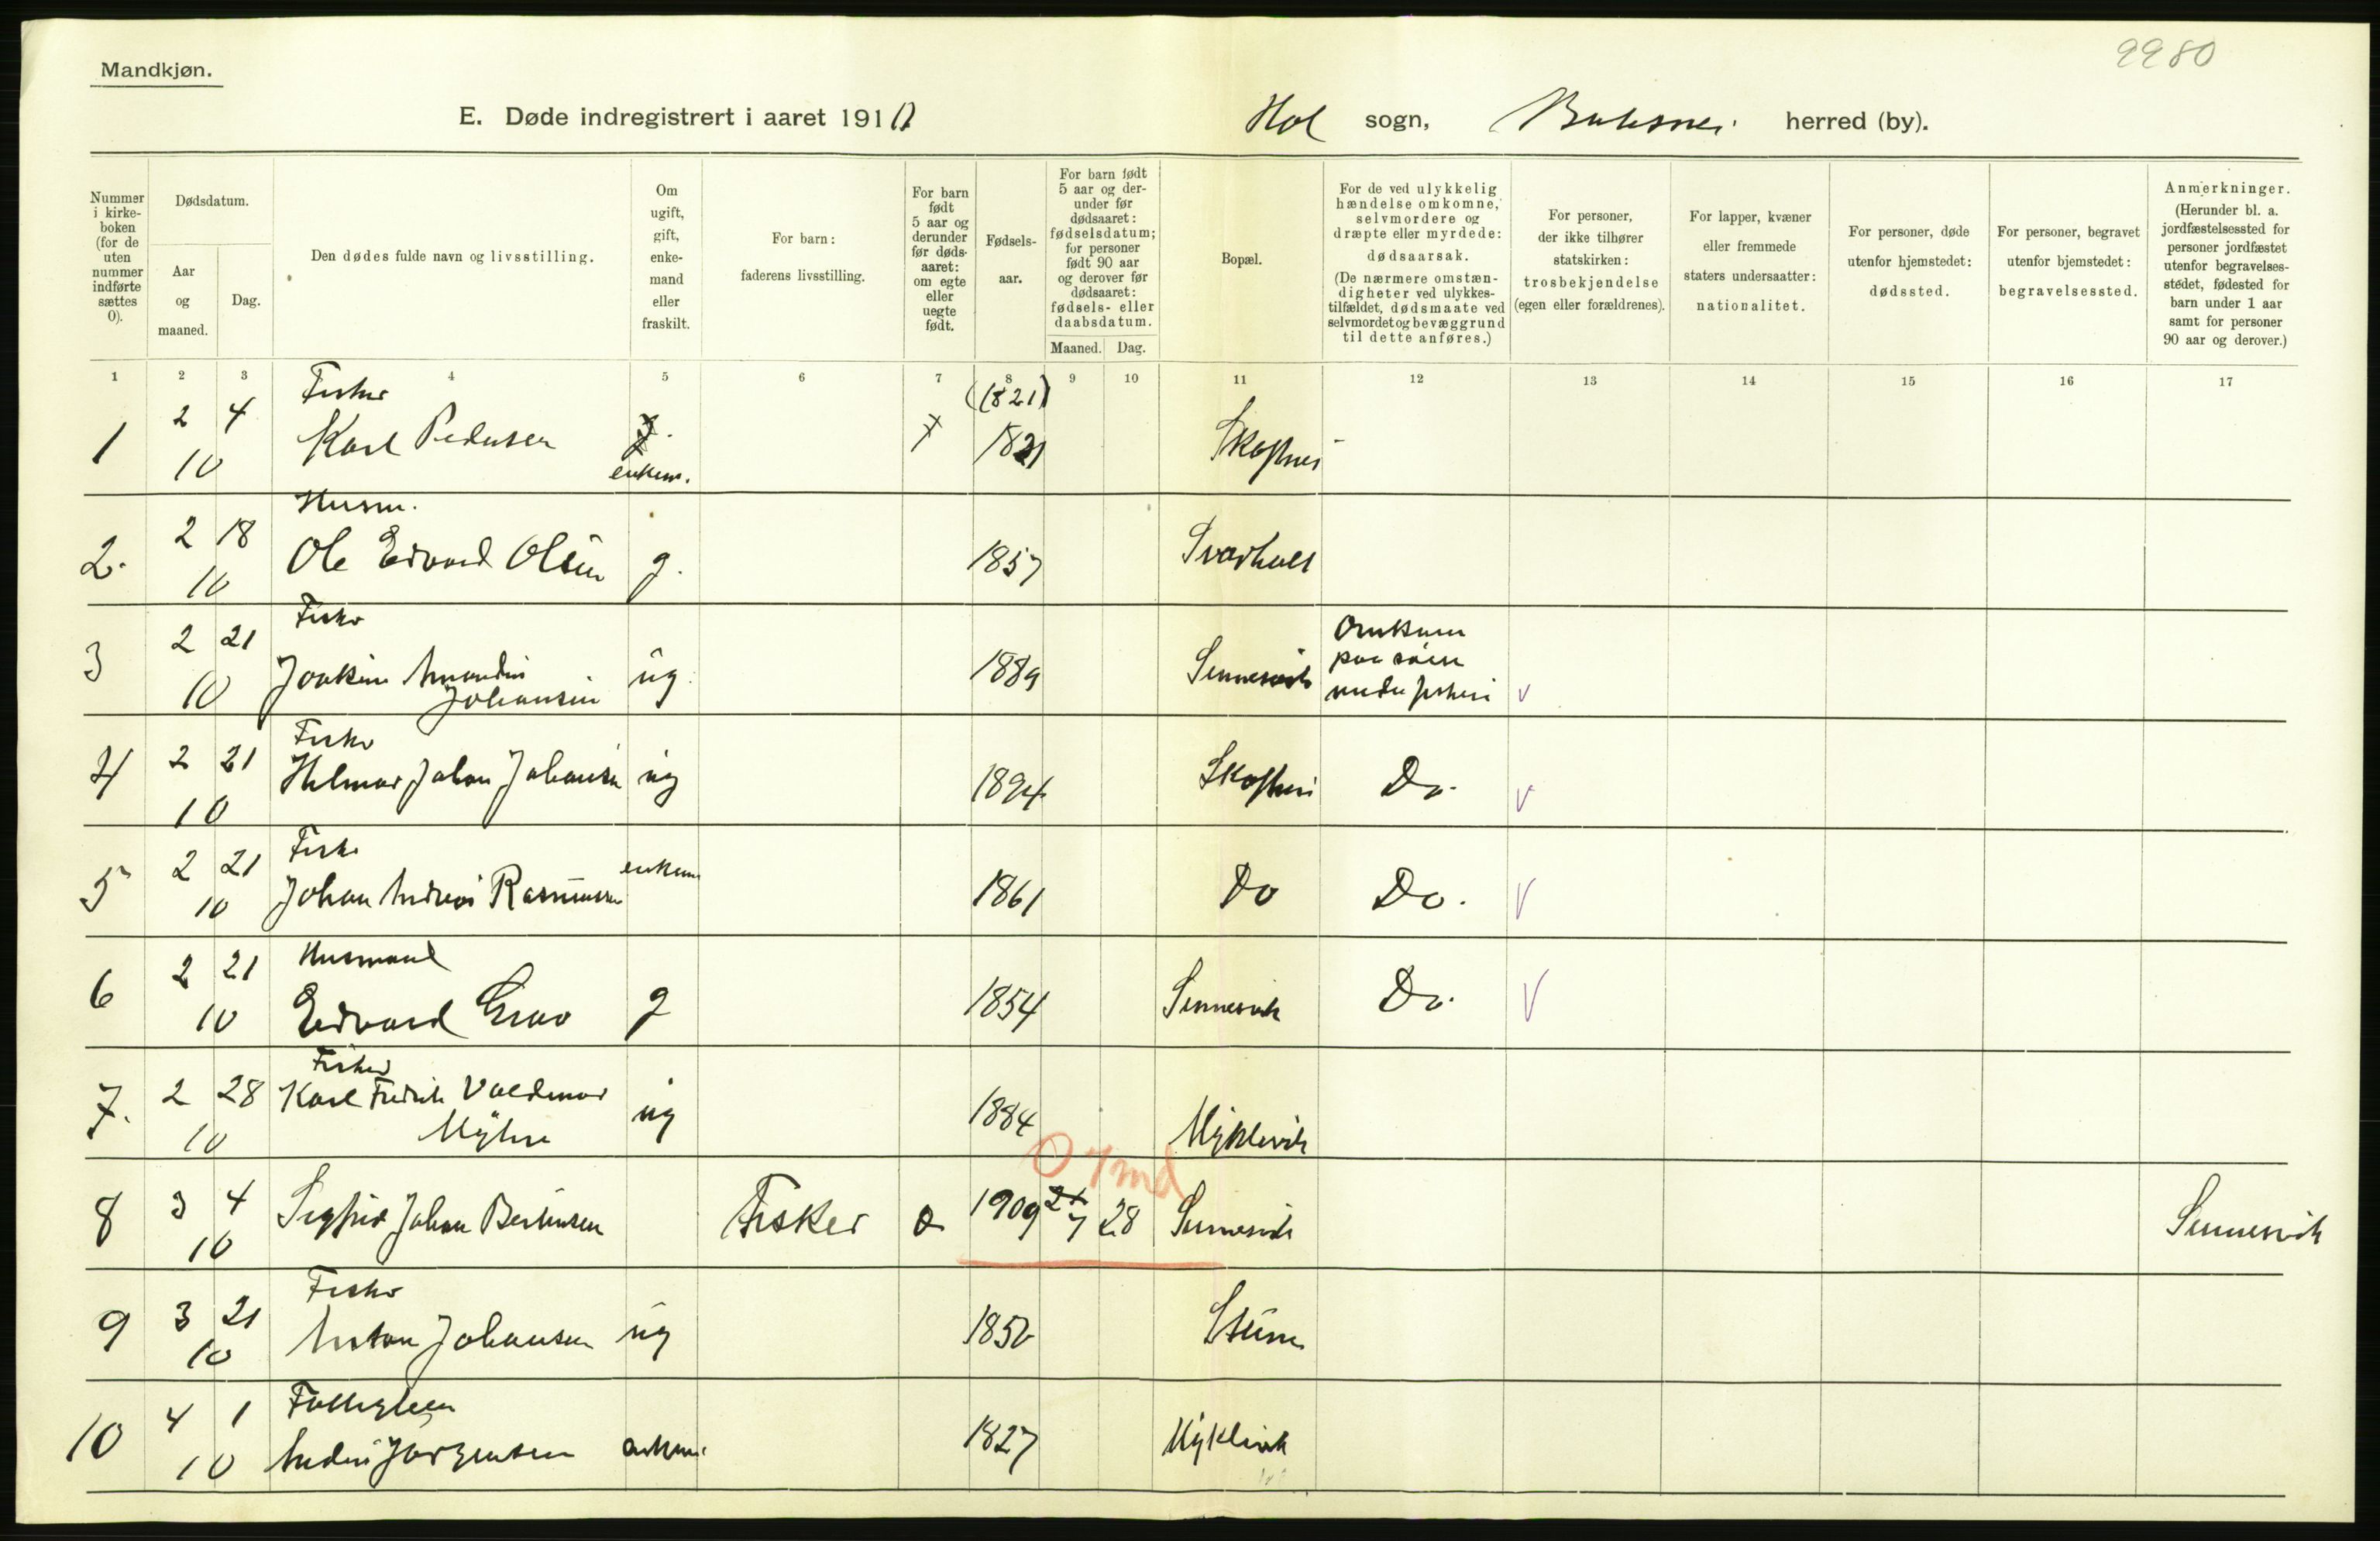 9980
Mandkjøn.
E. Døde indregistrert i aaret 1910. Hol sogn, Buksnes herred (by).
Nummer i kirkeboken (for de uten nummer indførte sættes 0).
Dødsdatum.
Aar og maaned.
Dag.
Den dødes fulde navn og livsstilling.
Om ugift, gift, enkemand eller fraskilt.
For barn: faderens livsstilling.
For barn født 5 aar og derunder før dødsaaret: om egte eller uegte født.
Fødselsaar.
For barn født 5 aar og derunder før dødsaaret: fødselsdatum; for personer født 90 aar og derover før dødsaaret: fødsels- eller daabsdatum.
Maaned. Dag.
Bopæl.
For de ved ulykkelig hændelse omkomne, selvmordere og dræpte eller myrdede: dødsaarsak.
(De nærmere omstændigheter ved ulykkestilfældet, dødsmaate ved selvmordet og bevæggrund til dette anføres.)
For personer, der ikke tilhører statskirken: trosbekjendelse (egen eller forældrenes).
For lapper, kvæner eller fremmede staters undersaatter: nationalitet.
For personer, døde utenfor hjemstedet: dødssted.
For personer, begravet utenfor hjemstedet: begravelsessted.
Anmerkninger.
(Herunder bl. a. jordfæstelsessted for personer jordfæstet utenfor begravelsesstedet, fødested for barn under 1 aar samt for personer 90 aar og derover.)
1 2 3 4 5 6 7 8 9 10 11 12 13 14 15 16 17
Fisker (1821)
1 2 4 Karl Pedersen 1821 Skofnes
10 enkem.
Husm.
2. 2 18 Ole Edvard Olsen g. 1857 Svarholt
10
Fisker Omkom
3 2 21 Joakim Amandus ug. 1889 Sennesvik paa søen
10 Johansen under fiskeri v
Fisker
4 2 21 Hilmar Johan Johansen ug 1894 Skofnes Do. v
10
Fisker
5 2 21 Johan Andreas Rasmussen enkem 1861 Do Do. v
10
Husmand
6 2 21 Edvard Grav g 1854 Sennesvik Do. v
10
Fisker
7. 2 28 Karl Fredrik Valdemar ug 1884 Myklevik
10 Myhre
0 7 md
8 3 4 Sigfrid Johan Berntsen Fisker 1909 7 28 Sennesvik Sennesvik
10
Fisker
9 3 21 Anton Johansen ug 1850 Steine
10
Fattiglem
10 4 1 Anders Jørgensen enkem. 1827 Myklevik
10